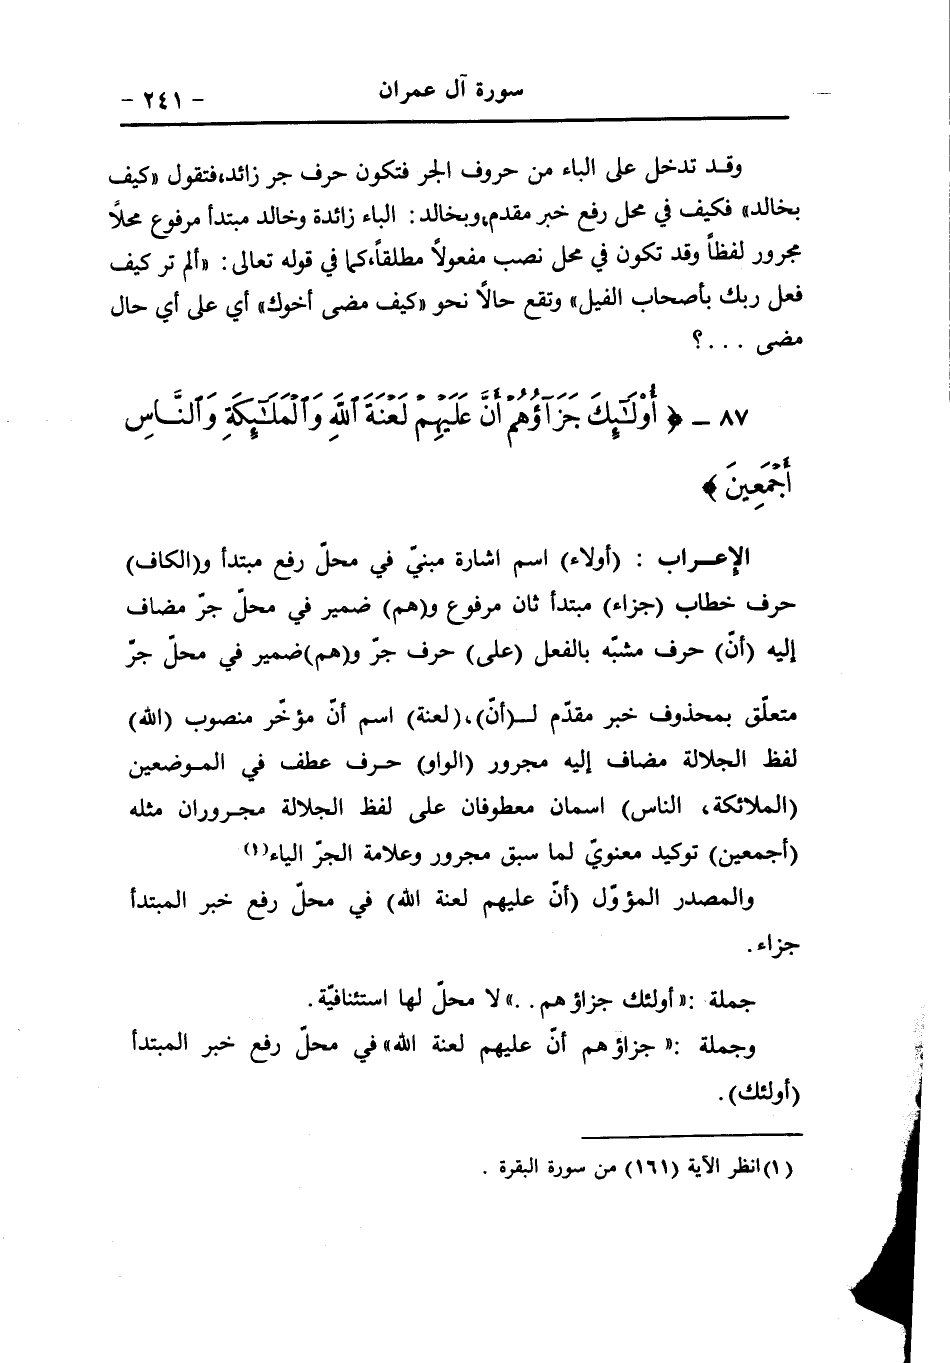 سورة آل عمران
- ٢٤١ -
وقـد تدخل على الباء من حروف الجر فتكون حرف جر زائد،فتقول «كيف
بخالد» فكيف في محل رفع خبر مقدم،وبخالد: الباء زائدة وخالد مبتدأ مرفوع محلاً
مجرور لفظاً وقد تكون في محل نصب مفعولاً مطلقاً،كما في قوله تعالى: «ألم تر كيف
فعل ربك بأصحاب الفيل» وتقع حالاً نحو «كيف مضى أخوك» أي على أي حال
مضى . . .؟
٨٧ ــ ﴿ أُوْلَـٰٓئِكَ جَزَآؤُهُمْ أَنَّ عَلَيْهِمْ لَعْنَةَ ٱللَّهِ وَٱلْمَلَـٰٓئِكَةِ وَٱلنَّـاسِ
أَجْمَعِينَ ﴾
الإعـراب : (أولاء) اسم اشارة مبنيّ في محلّ رفع مبتدأ و(الكاف)
حرف خطاب (جزاء) مبتدأ ثان مرفوع و(هم) ضمير في محلّ جرّ مضاف
إليه (أنّ) حرف مشبّه بالفعل (على) حرف جرّ و(هم)ضمير في محلّ جرّ
متعلّق بمحذوف خبر مقدّم لـ(أنّ)،(لعنة) اسم أنّ مؤخّر منصوب (الله)
لفظ الجلالة مضاف إليه مجرور (الواو) حـرف عطف في المـوضعين
(الملائكة، الناس) اسمان معطوفان على لفظ الجلالة مجـروران مثله
(أجمعين) توكيد معنويّ لما سبق مجرور وعلامة الجرّ الياء(١)
والمصدر المؤوّل (أنّ عليهم لعنة الله) في محلّ رفع خبر المبتدأ
جزاء.
جملة :«أولئك جزاؤهم . .» لا محلّ لها استئنافيّة.
وجملة :« جزاؤهم أنّ عليهم لعنة الله»في محلّ رفع خبر المبتدأ
(أولئك).
(١)انظر الآية (١٦١) من سورة البقرة .